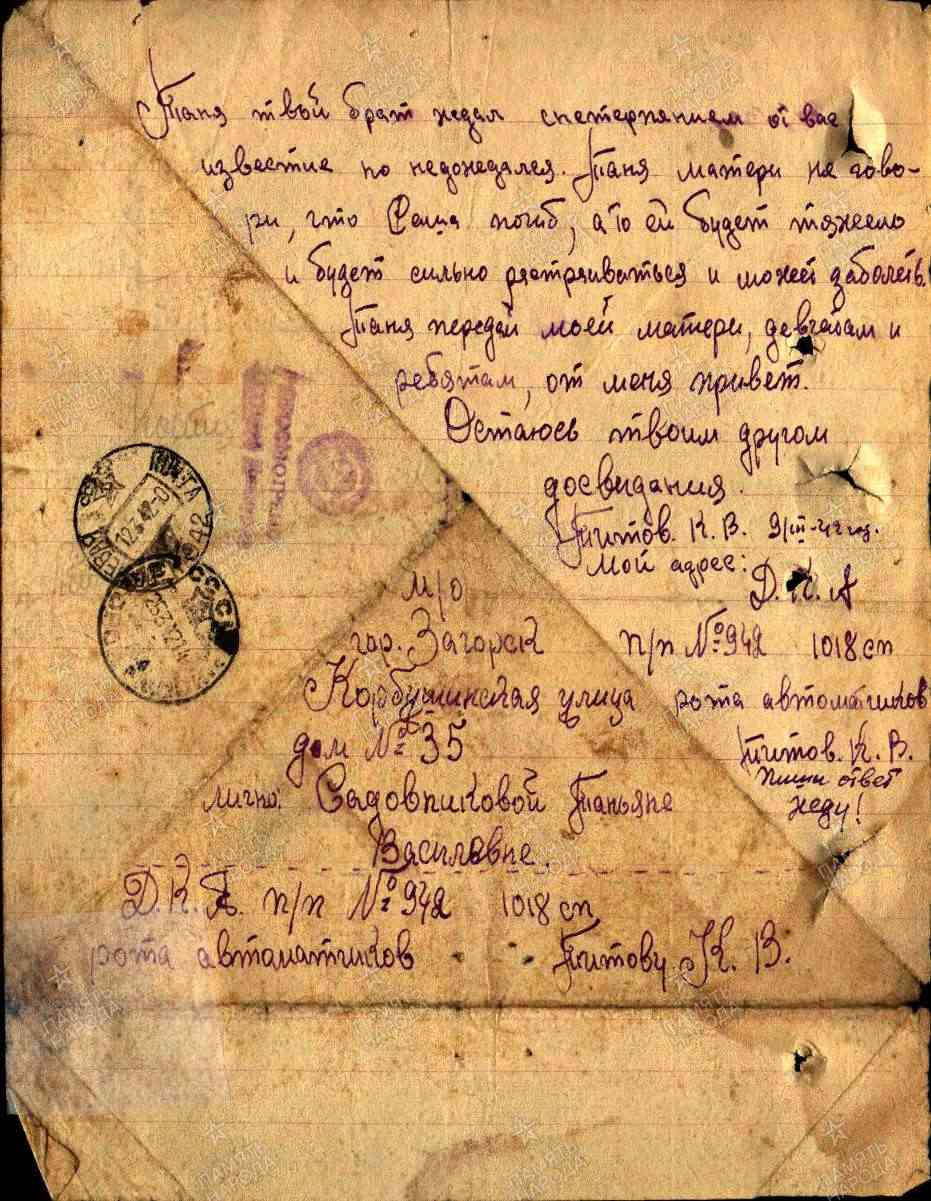 Таня твой брат ждал снетерпянием от вас
известие но недождался. Таня матери не гово-
ри, что Саша погиб, а то ей будет тяжело
и будет сильно растраиваться и может заболеть.
Таня передай моей матери, девчатам и
ребятам, от меня привет.
Остаюсь твоим другом
досвидания.
Титов. К. В. 9/III-42 год.
Мой адрес:
Д. К. А
п/п № 942 1018 сп
рота автоматчиков
Титов. К. В.
Пиши ответ
жду!
М/О
гор. Загорск
улица
дом № 35
лично: Садовниковой Татьяне
Василевне.
Д. К. А. п/п № 942 1018 сп
рота автоматчиков Титову К. В.
ПОЧТА
12.3.42
СССР
ПАМЯТЬ НАРОДА